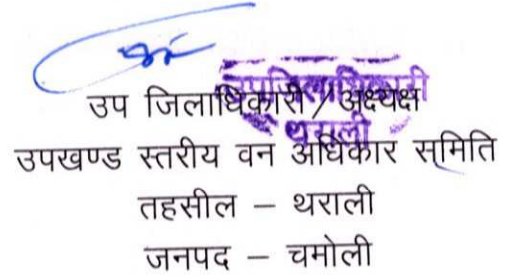 उपजिलाधिकारी
उप जिलाधिकारी / अध्यक्ष
थराली
उपखण्ड स्तरीय वन अधिकार समिति
तहसील – थराली
जनपद – चमोली